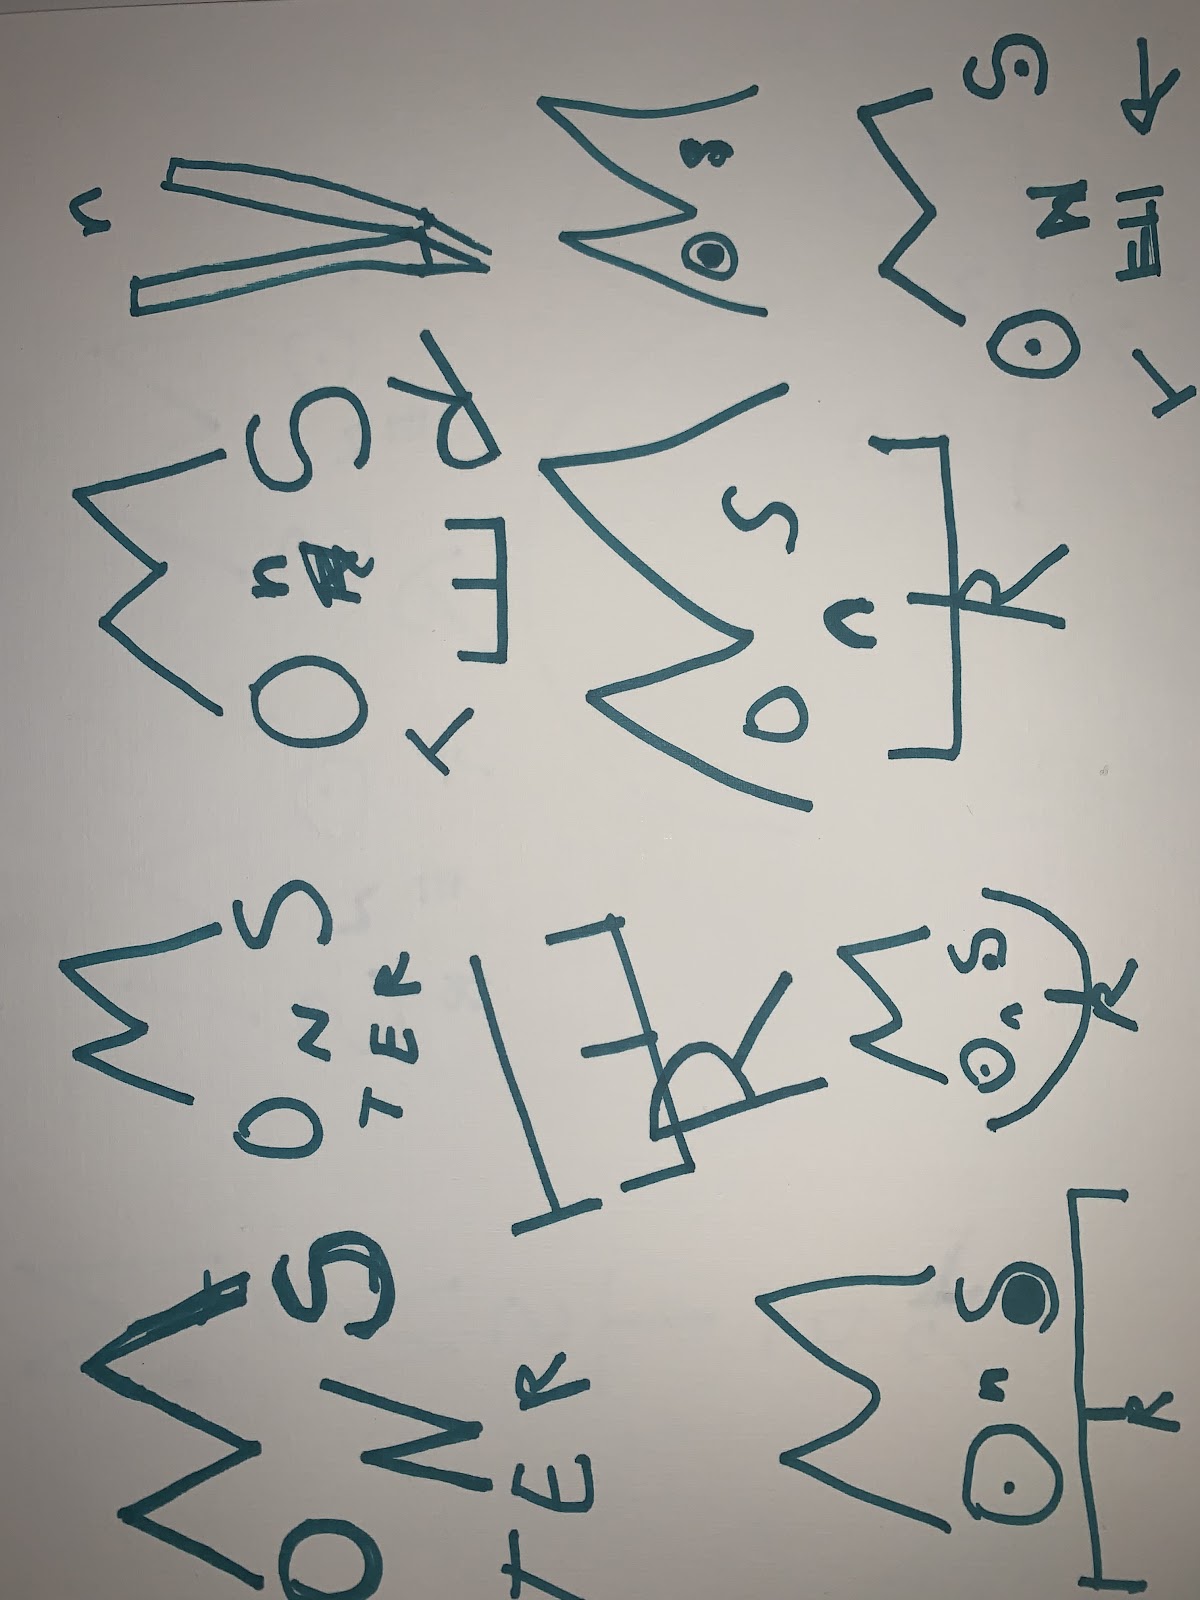 M
O N S
T E R
M
O N S
T E R
M
O n S
T E R
n
M
O n S
T E R
T E R
M
O n S
E R
M
O S
M
O n S
T R
M
O N S
T E